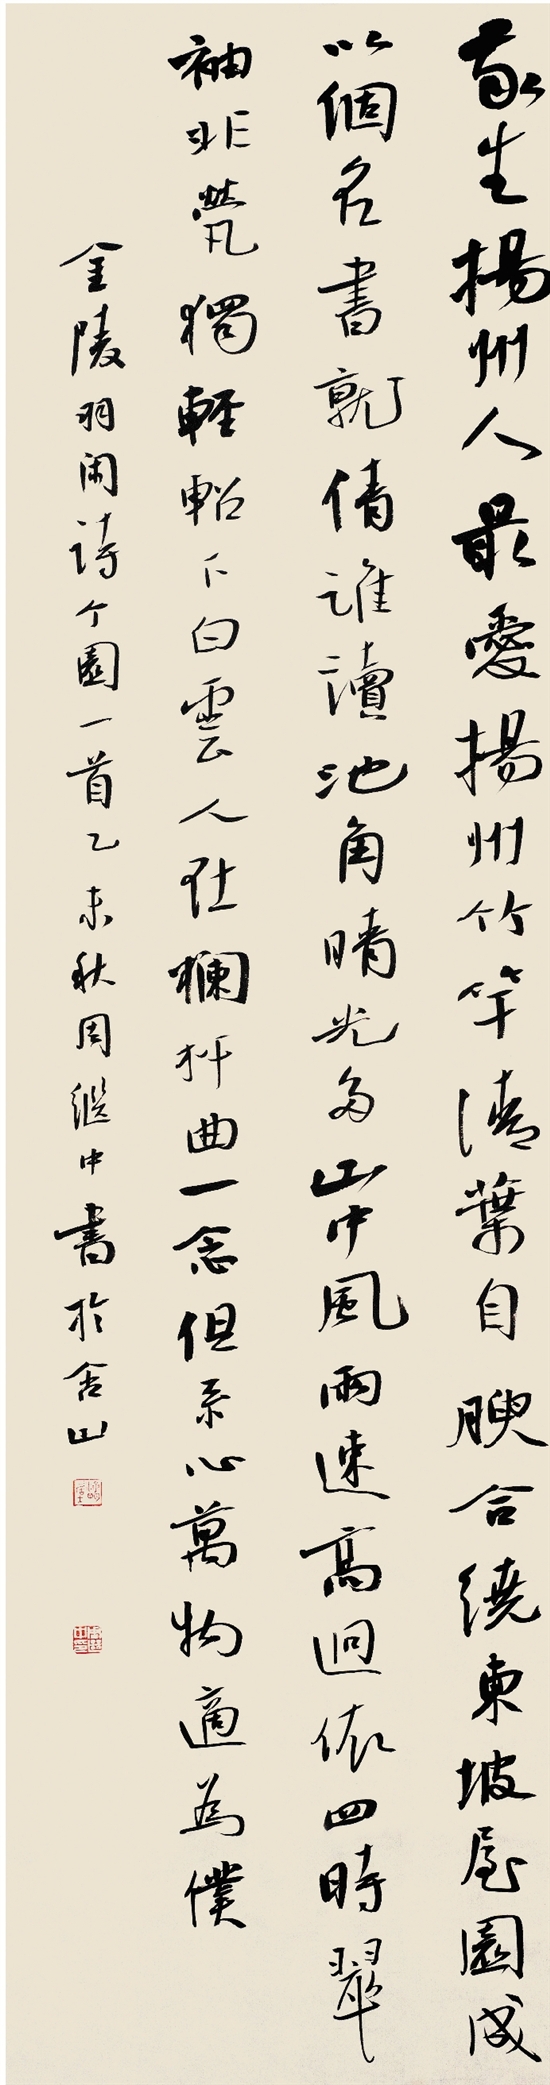 生揚州人最愛揚州竹竿清葉自腴合繞東坡屋園成
以個名書就倩誰讀池角晴光多山中風雨速高迥依四時翠
袖非煢獨輕軺下白雲人在欄杆曲一念但系心萬物適為僕
金陵羽闲詩个園一首乙未秋周繼中書於含山